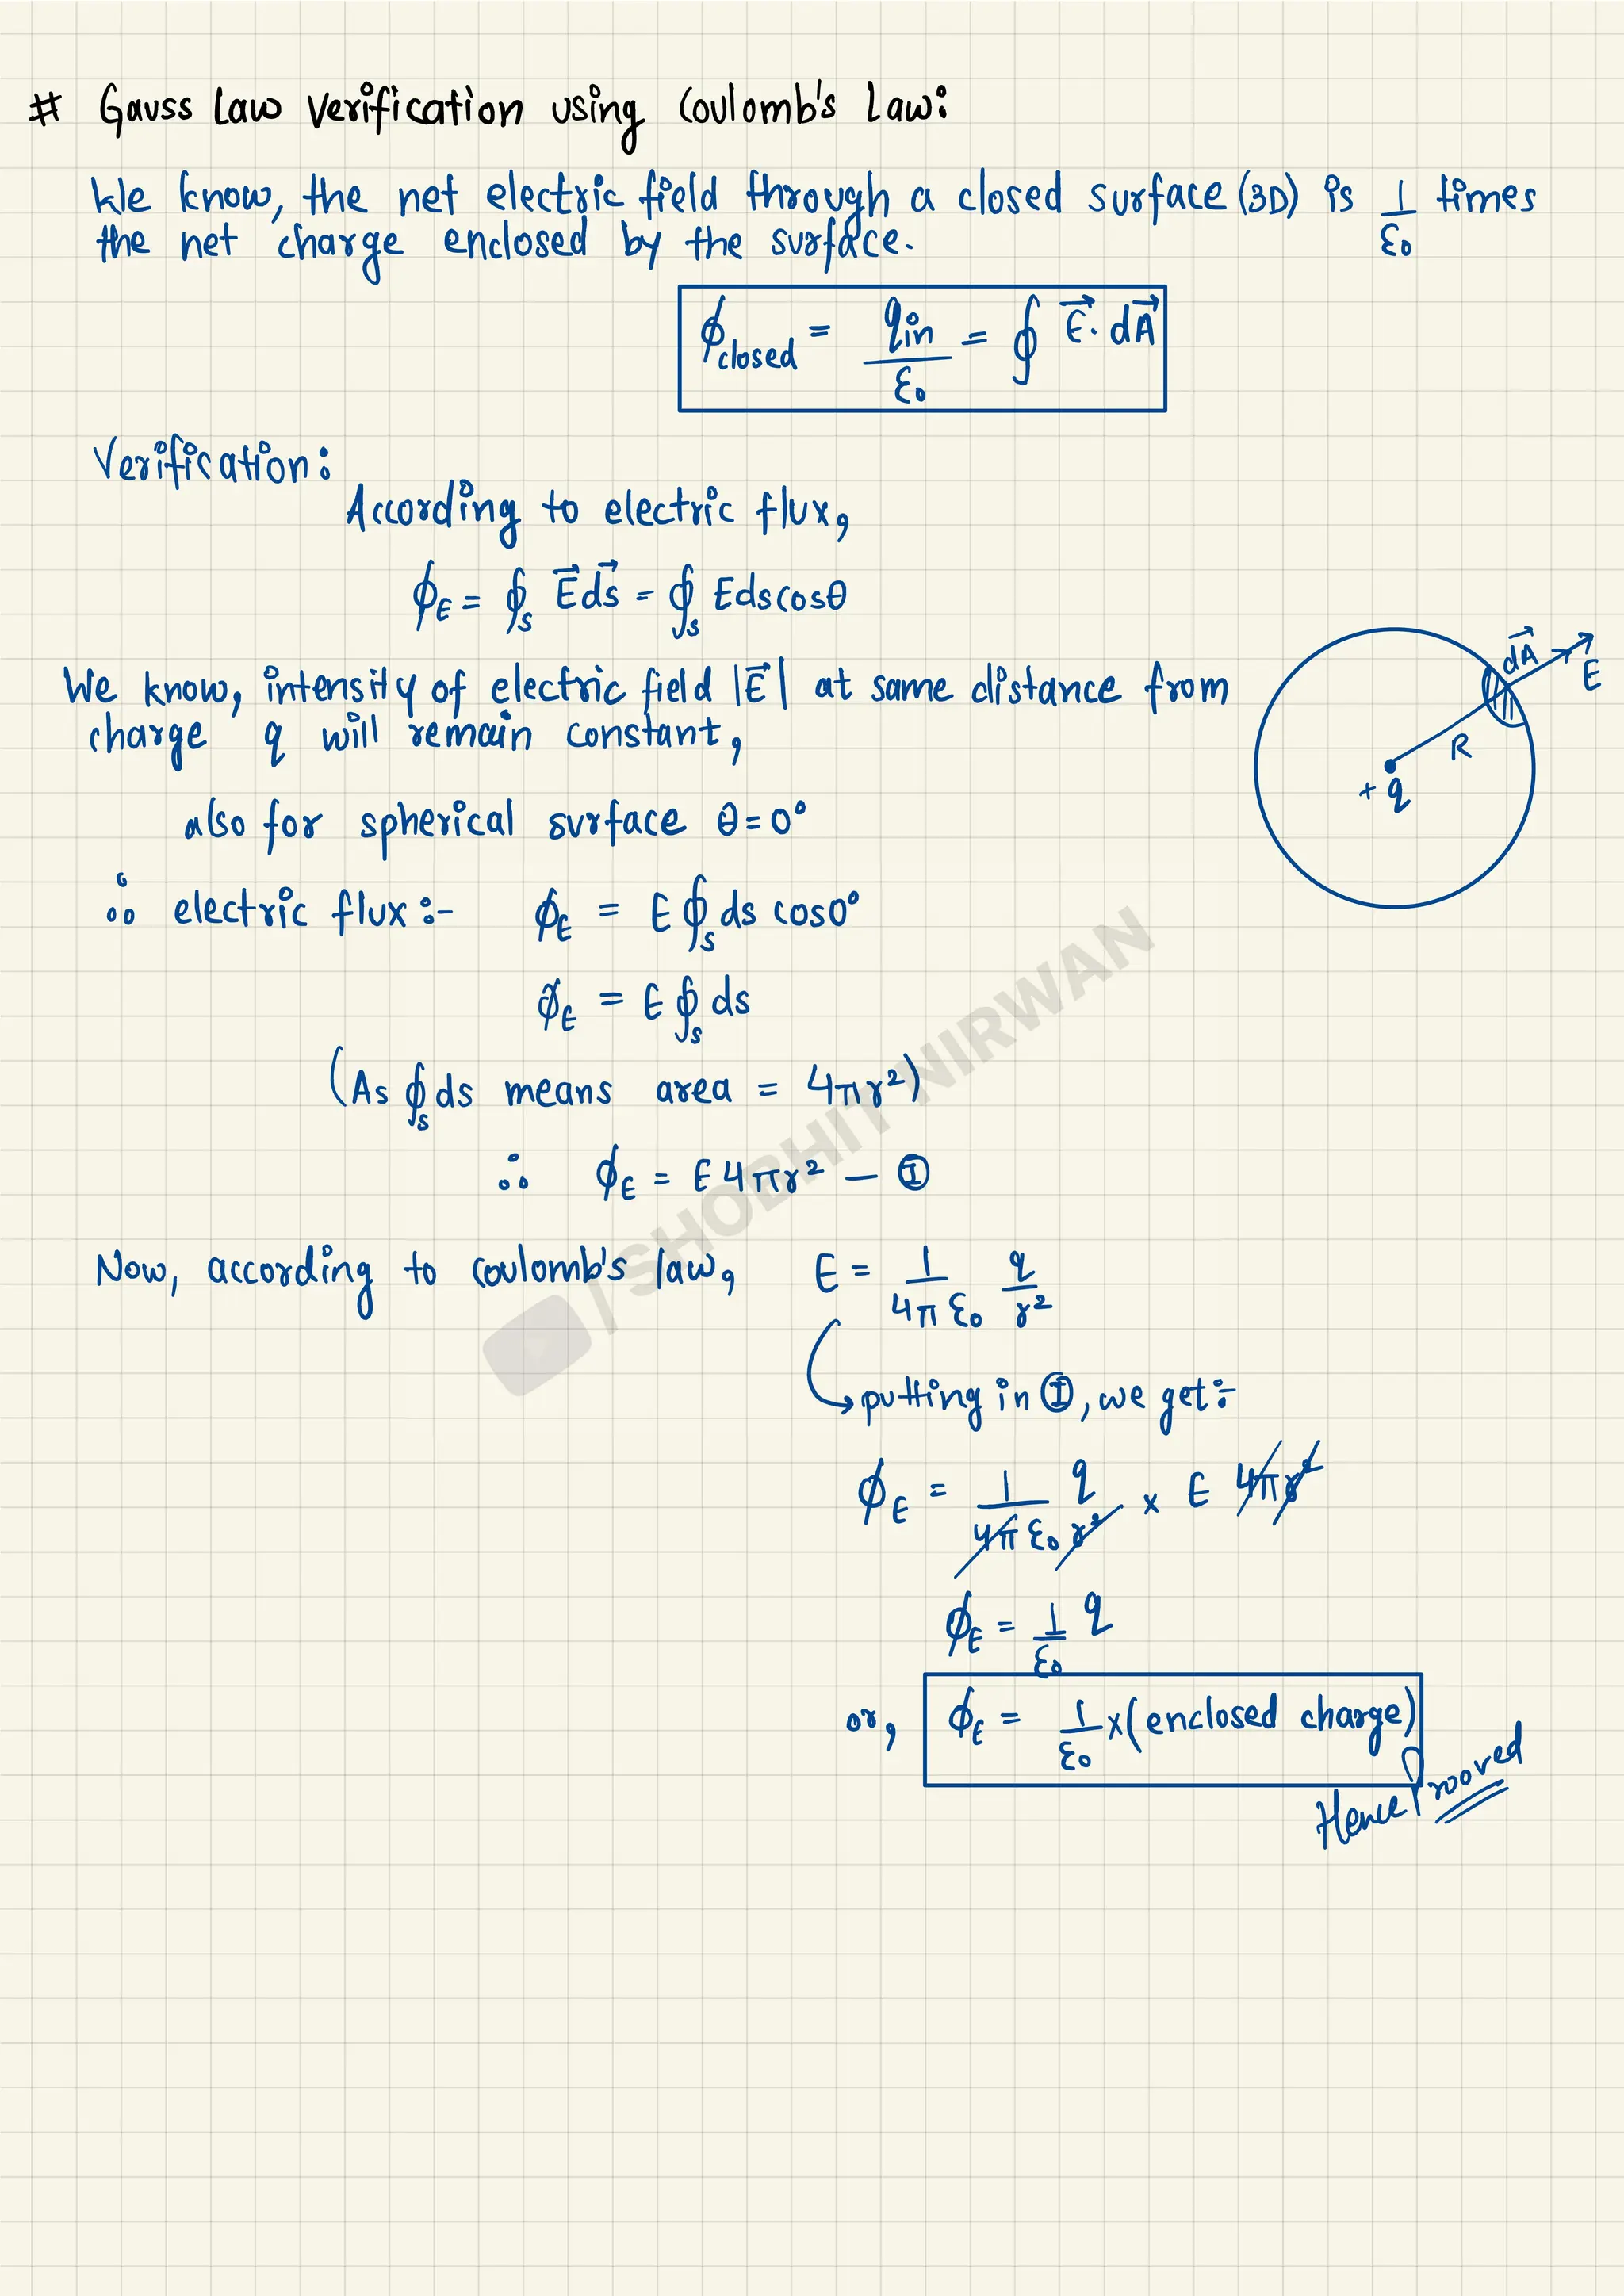 # Gauss Law Verification using Coulomb's Law:
We know, the net electric field through a closed surface (3D) is 1/ε₀ times
the net charge enclosed by the surface.
ϕclosed = qin/ε₀ = ∮ E⃗. dA⃗
Verification:
According to electric flux,
ϕE = ∮s E⃗ds⃗ = ∮s Edscosθ
We know, intensity of electric field |E⃗| at same distance from
charge q will remain constant,
also for spherical surface θ=0°
∴ electric flux :- ϕE = E∮s ds cos0°
ϕE = E∮s ds
(As ∮s ds means area = 4πr²)
∴ ϕE = E4πr² — Ⓘ
Now, according to coulomb's law, E = 1/4πε₀ q/r²
putting in Ⓘ, we get:-
ϕE = 1/4πε₀ q/r² x E 4πr²
ϕE = 1/ε₀ q
or, ϕE = 1/ε₀ x (enclosed charge)
Hence Prooved
dA⃗
E⃗
R
+q
/SHOBHIT NIRWAN